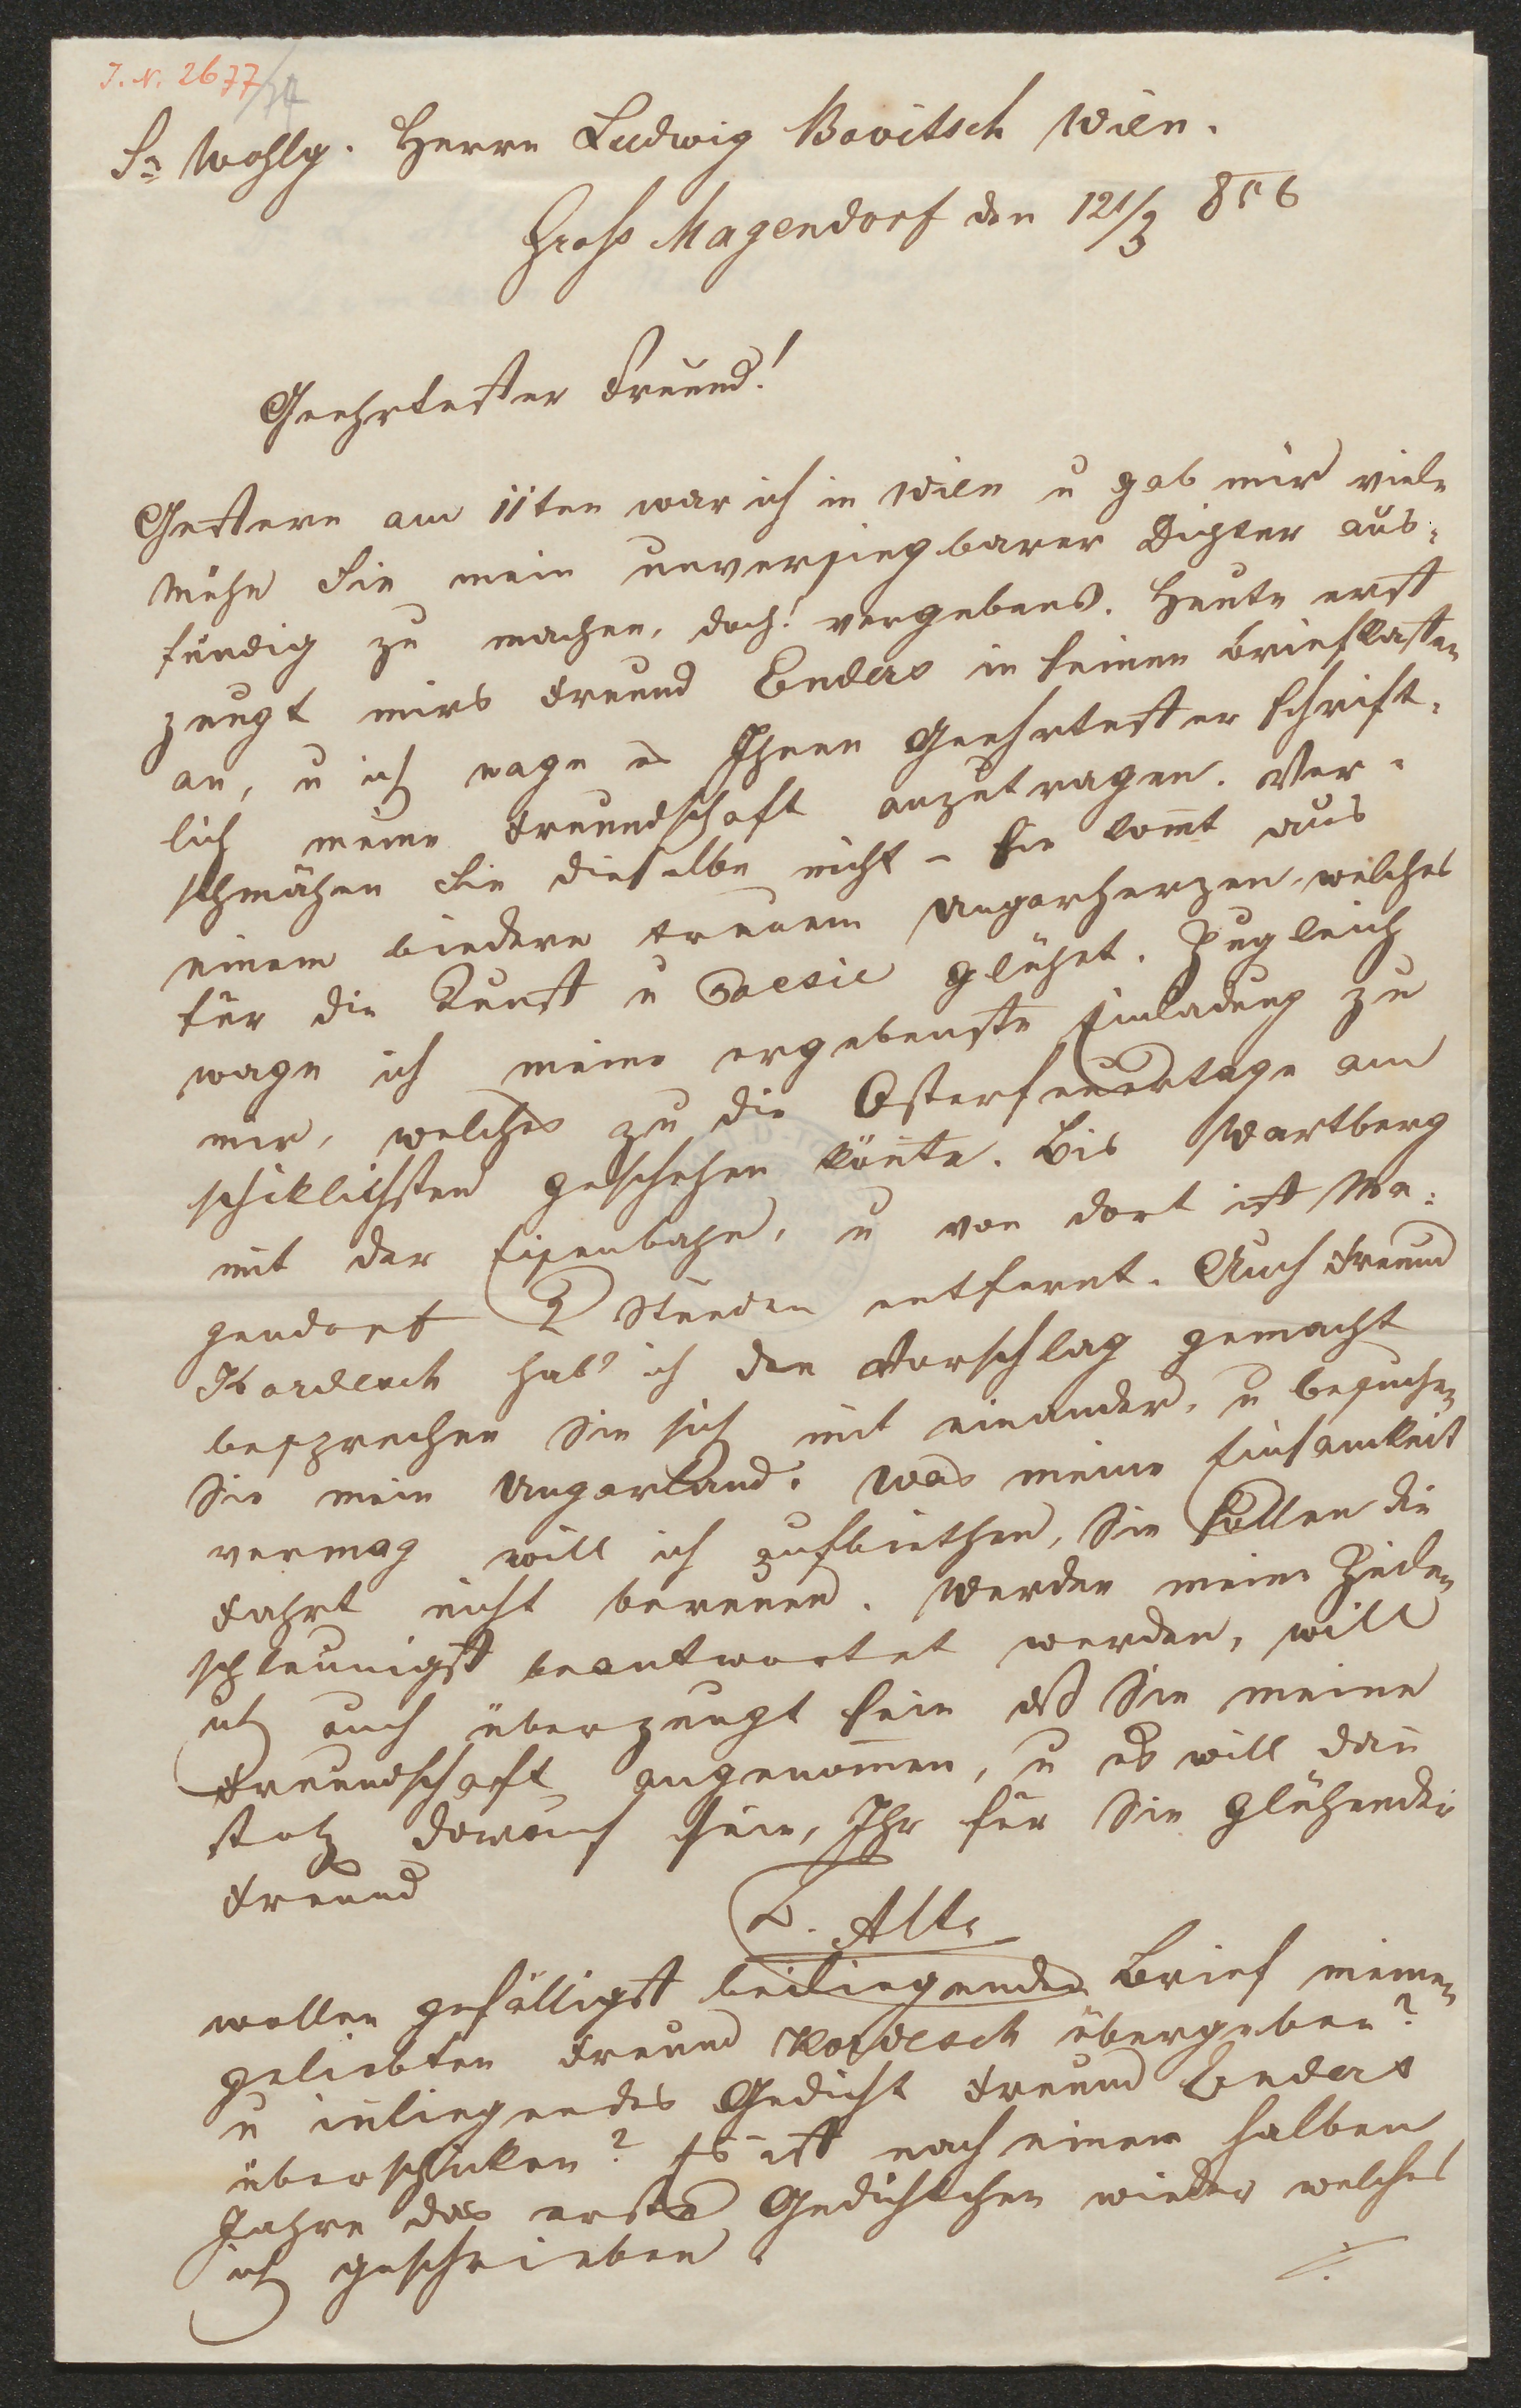 I. N. 2677/74
Sr Wohlg. Herrn Ludwig Bowitsch Wien.
Groß Magendorf den 12/3 856
Geehrtester Freund!
Gestern am 11ten war ich in Wien u gab mir viele
Mühe Sie mein unversiegbarer Dichter aus-
fündig zu machen, doch! vergebens. Heute erst
zeugt mirs Freund Enders in seinen Briefkasten
an, u ich wage es Ihnen Geehrtester schrift-
lich meine Freundschaft anzutragen. Ver-
schmähen Sie dieselbe nicht – sie kom̅t aus
einem biedern treuem Ungarherzen, welches
für die Kunst u Poesie glühet. Zugleich
wage ich meine ergebenste Einladung zu
mir, welches zu die Osterfeuertage am
schiklichsten geschehen kön̅te. Bis Wartberg
mit der Eisenbahn, u von dort ist Ma-
gendorf 2 Stunden entfernt. Auch Freund
Kordesch hab' ich den Vorschlag gemacht
besprechen Sie sich mit einander, u besuchen
Sie mein Ungarland. Was meine Einsamkeit
vermag will ich aufbiethen, Sie sollen die
Fahrt nicht bereuen. Werden meine Zeilen
schleunigst beantwortet werden, will
ich auch überzeugt sein daß Sie meine
Freundschaft angenom̅en, u es will dan̅
stolz darauf sein, Ihr für Sie glühender
Freund
L. Alt
wollen gefälligst beiliegenden Brief meinen
geliebten Freund Kordesch übergeben?
u inliegendes Gedicht Freund Enders
überschicken? Es ist nach einem halben
Jahre das erste Gedichtchen wieder welches
ich geschrieben.